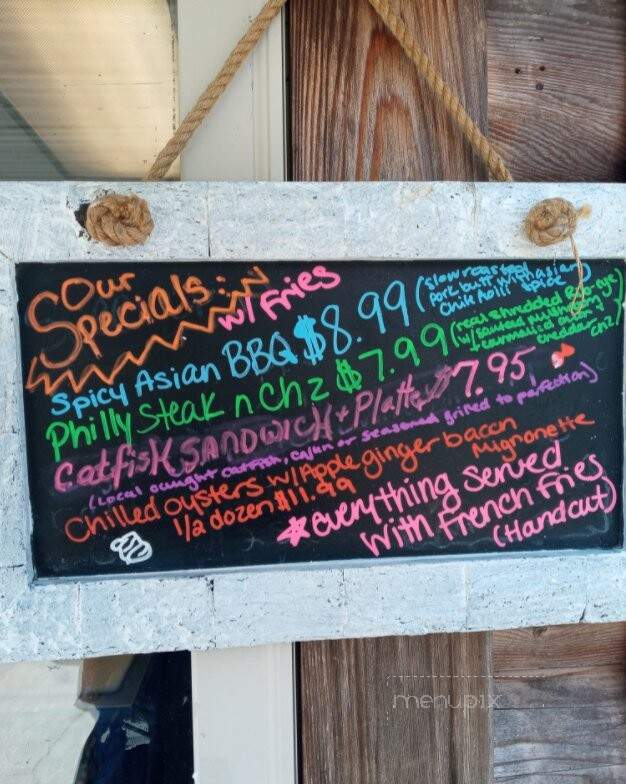 Our
Specials:
w/ Fries
Spicy Asian BBQ $8.99 (slow roasted
pork butt with asian
chile aoili spice
Philly Steak n Chz $7.99 (real shredded Rib-eye
cheddar
chz)
Catfish SANDWICH + Platter $7.95
(Local caught catfish, cajun or seasoned grilled to perfection)
Chilled oysters w/Apple ginger bacon
Mignonette
1/2 dozen $11.99
*everything served
with French fries
(Handcut)
menupix